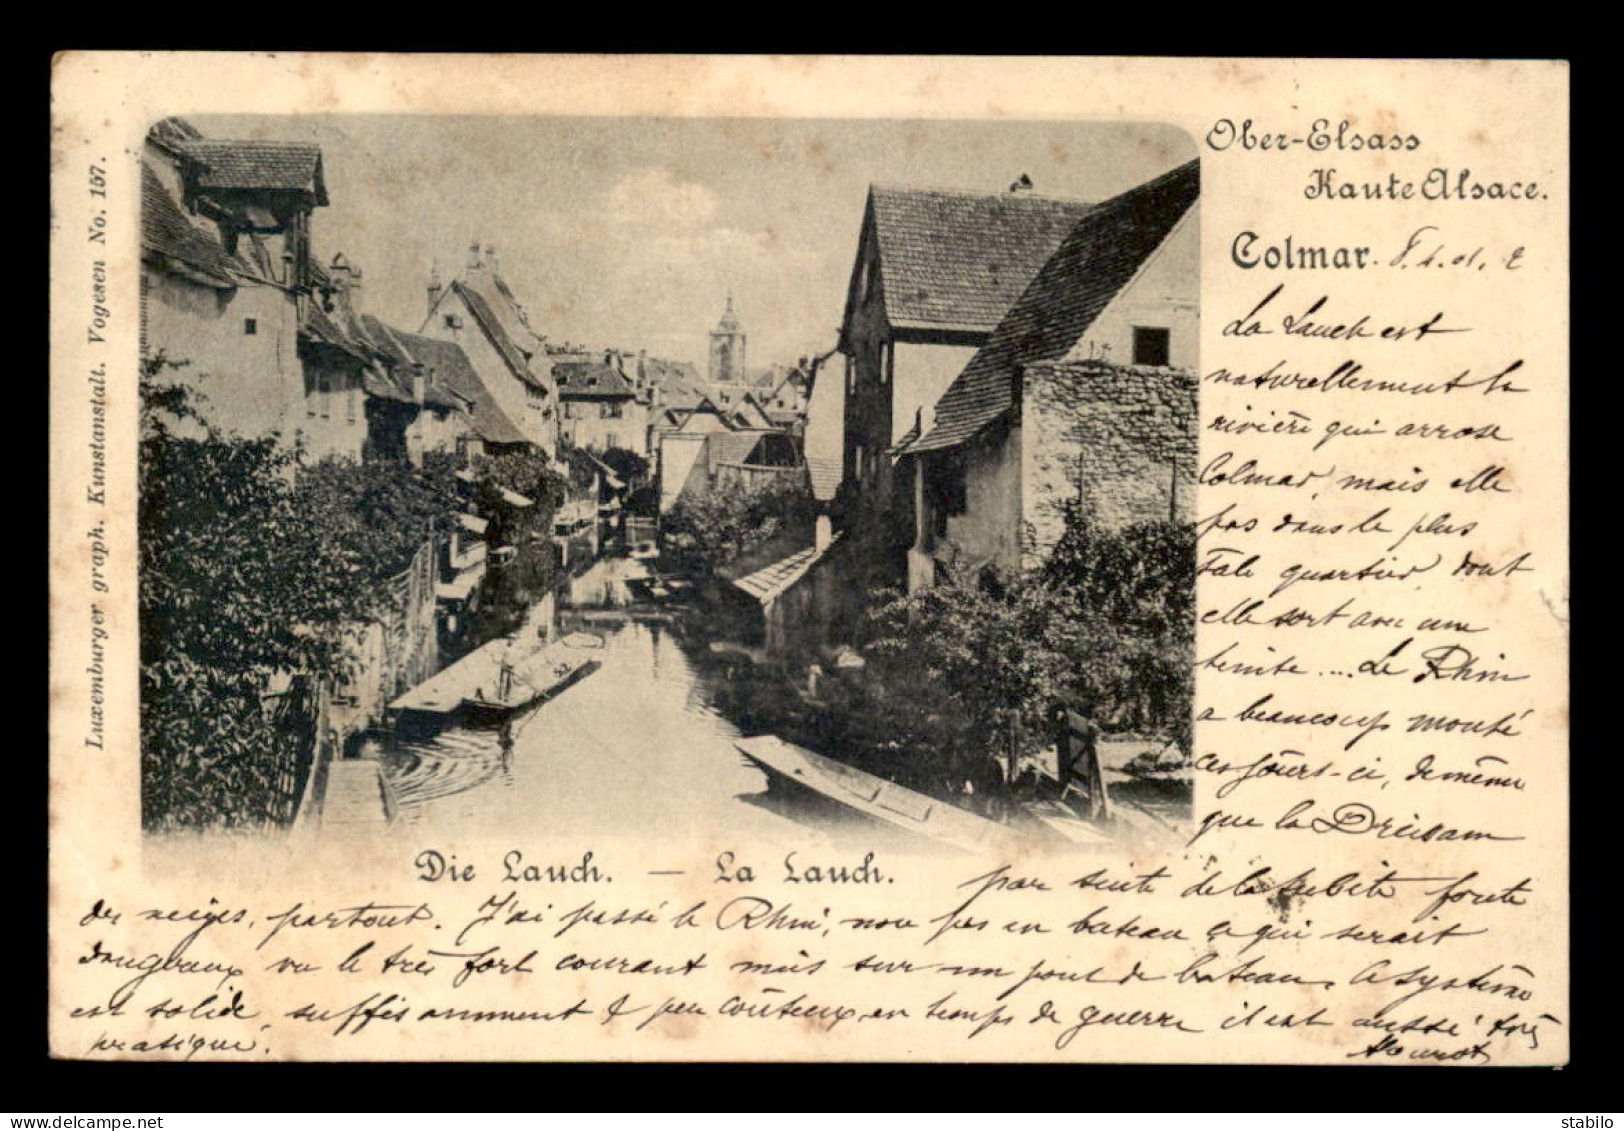 Ober-Elsass
Haute Alsace.
Colmar.
Luxemburger graph. Kunstanstalt. Vogesen No. 157.
52
Die Lauch. — La Lauch.
La Lauch est
naturellement la
rivière qui arrose
Colmar, mais elle
pas dans le plus
sale quartier, dont
elle sort avec une
teinte .... Le Rhin
a beaucoup monté
ces jours-ci, de même
que la Dreisam
par suite de la subite fonte
des neiges, partout. J'ai passé le Rhin, non pas en bateau ce qui serait
dangereux vu le très fort courant mais sur un pont de bateaux, Ce système
est solide, suffisamment & peu coûteux, en temps de guerre il est aussi très
pratique.
stabilo